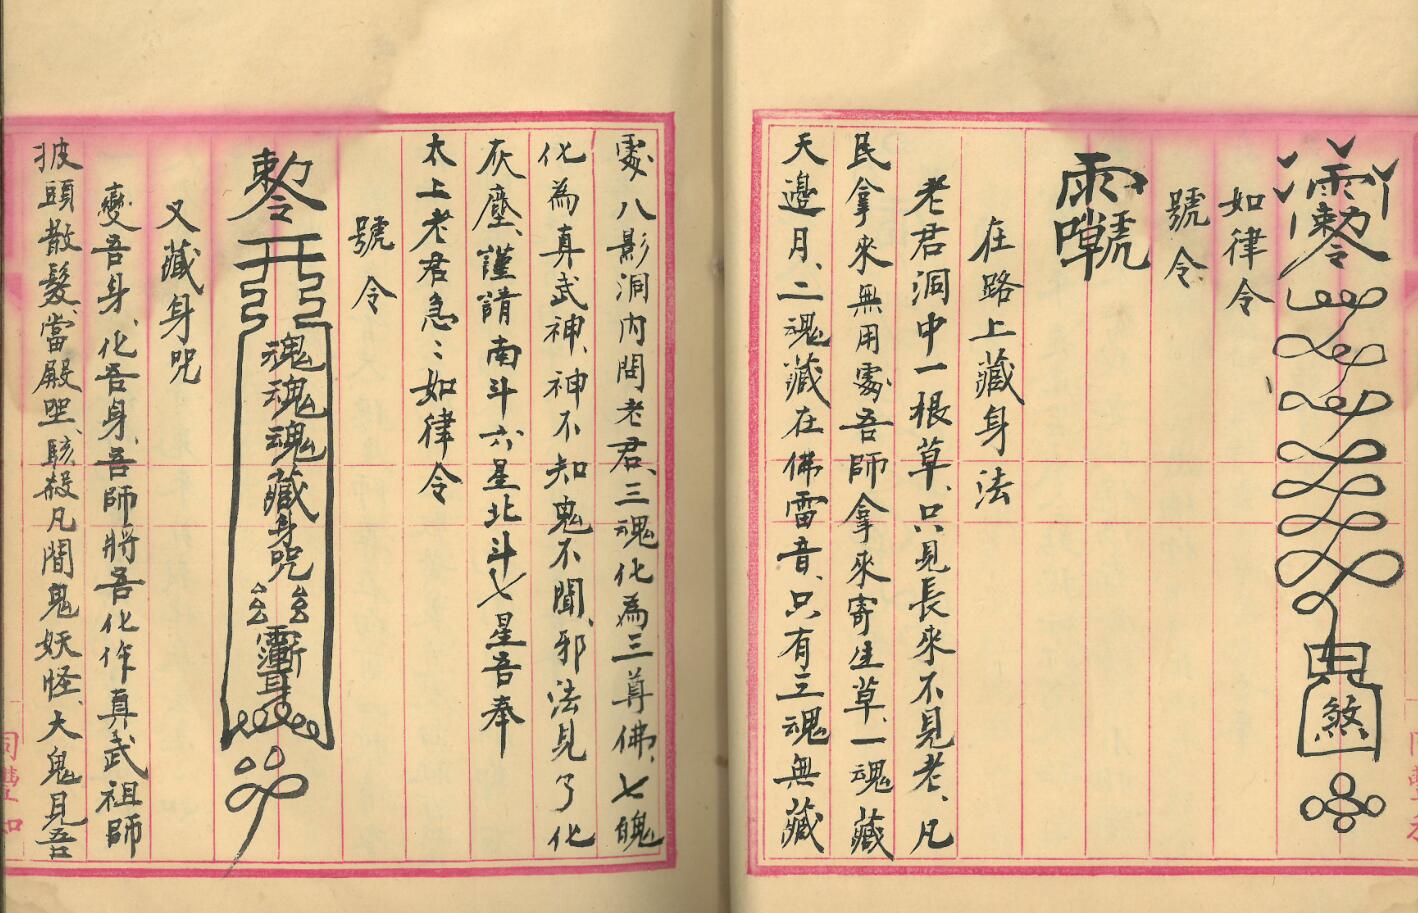 敕令
煞
如律令
號令
在路上藏身法
老君洞中一根草、只見長來不見老、凡
民拿來無用處吾師拿來寄生草、一魂藏
天邊月、二魂藏在佛雷音、只有三魂無藏
處、八影洞內問老君、三魂化為三尊佛、七魄
化為真武神、神不知鬼不聞、邪法見了化
灰塵、謹請南斗六星北斗七星吾奉
太上老君急〻如律令
號令
敕令
魂魂魂藏身咒
又藏身咒
變吾身、化吾身、吾師將吾化作真武祖師
披頭散髮、當殿坐、駭殺凡間鬼妖怪、大鬼見吾